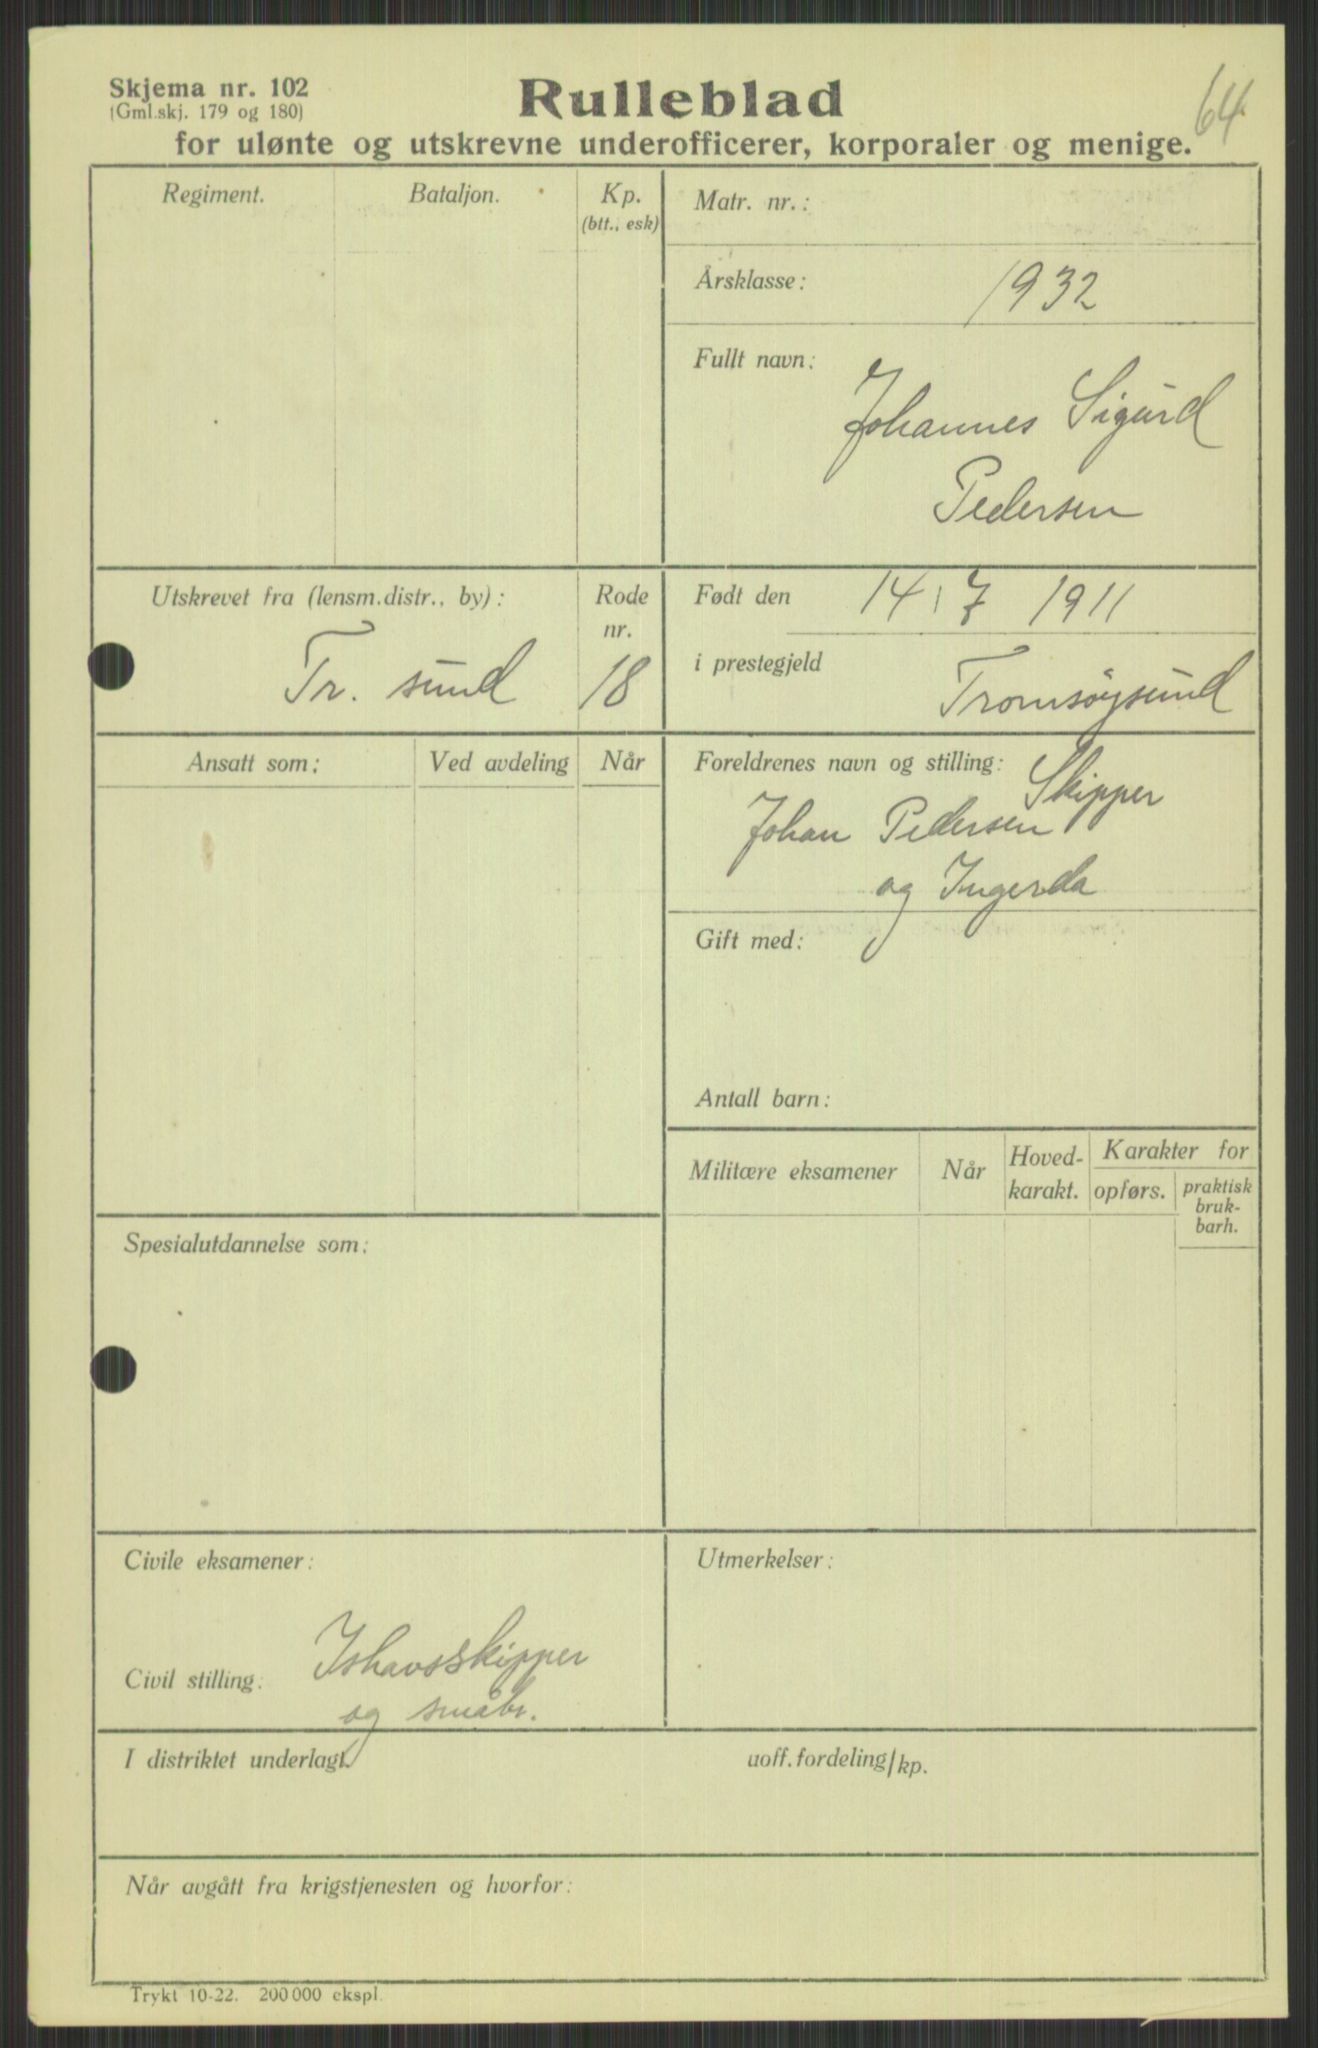 Skjema nr. 102
(Gml.skj. 179 og 180)
Rulleblad
64
for ulønte og utskrevne underofficerer, korporaler og menige.
Regiment.
Bataljon.
Kp.
(btt., esk)
Matr. nr.:
Årsklasse: 1932
Fullt navn:
Johannes Sigurd
Pedersen
Utskrevet fra (lensm.distr., by):
Tr. sund
Rode
nr.
18
Født den 14/7 1911
i prestegjeld Tromsøysund
Ansatt som:
Ved avdeling
Når
Foreldrenes navn og stilling: Skipper
Johan Pedersen
og Ingerda
Gift med:
Antall barn:
Militære eksamener
Når
Hoved-
karakt.
Karakter for
opførs.
praktisk
bruk-
barh.
Spesialutdannelse som:
Civile eksamener:
Civil stilling: Ishavsskipper
og småbr.
Utmerkelser:
I distriktet underlagt
uoff.fordeling/kp.
Når avgått fra krigstjenesten og hvorfor:
Trykt 10-22. 200 000 ekspl.